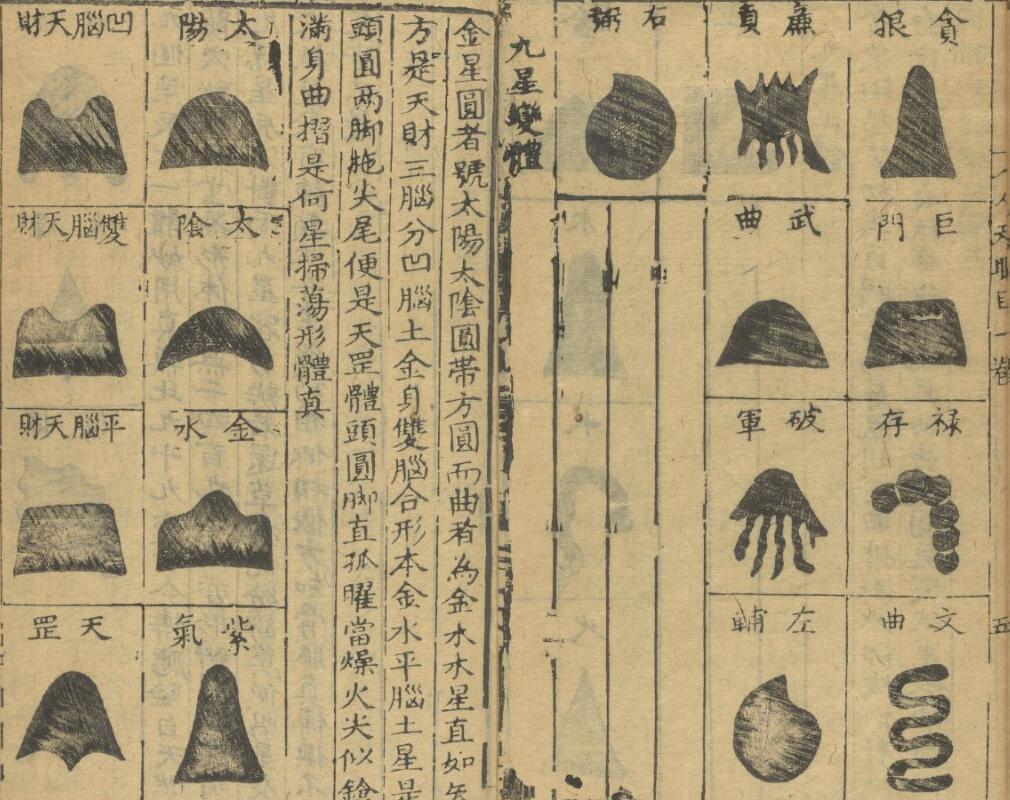 貪狼
巨門
禄存
文曲
廉貞
武曲
破軍
左輔
右弼
九星變體
金星圓者號太陽太陰圓帶方圓而曲者為金水木星直如矢
方是天財三腦分凹腦土金身雙腦合形本金水平腦土星是
頭圓兩脚拖尖尾便是天罡體頭圓脚直孤曜當燥火尖似鎗
滿身曲摺是何星掃蕩形體真
太陽
太陰
金水
紫氣
凹腦天財
雙腦天財
平腦天財
天罡
卷
五